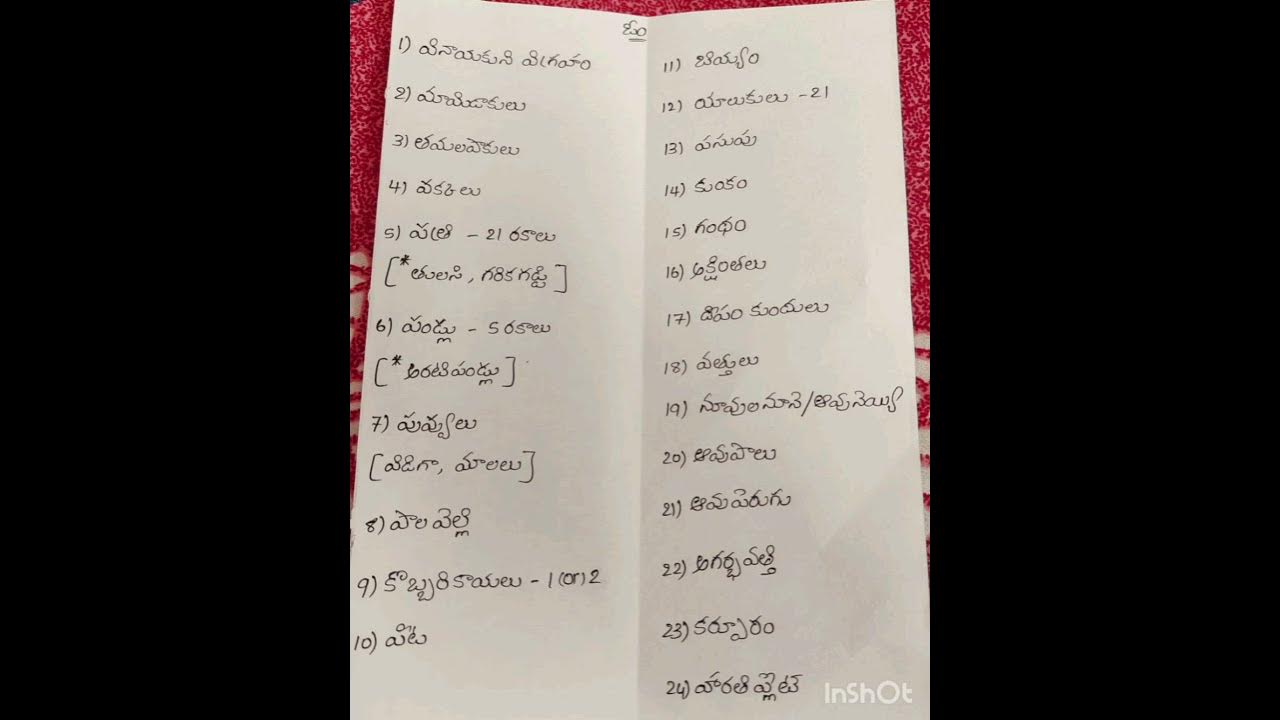 ఓం
1) వినాయకుని విగ్రహం
2) మామిడాకులు
3) తమలపాకులు
4) వక్కలు
5) పత్రి - 21 రకాలు
[*తులసి, గరికగడ్డి]
6) పండ్లు - 5 రకాలు
[*అరటిపండ్లు]
7) పువ్వులు
[విడిగా, మాలలు]
8) పాల వెల్లి
9) కొబ్బరికాయలు - 1 (or) 2
10) పీట
11) బియ్యం
12) యాలుకులు - 21
13) పసుపు
14) కుంకం
15) గంధం
16) అక్షింతలు
17) దీపం కుందులు
18) వత్తులు
19) నూవులనూనె/ఆవునెయ్యి
20) ఆవుపాలు
21) ఆవుపెరుగు
22) అగర్భవత్తి
23) కర్పూరం
24) హారతి ప్లేట్
InShOt